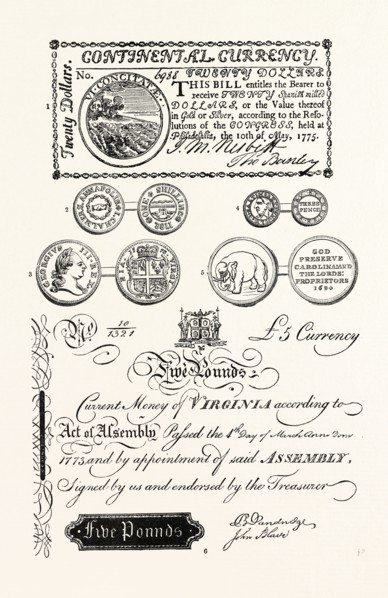 CONTINENTAL CURRENCY.
Twenty Dollars.
No. 6988 TWENTY DOLLARS.
THIS BILL entitles the Bearer to
receive TWENTY Spanish milled
DOLLARS, or the Value thereof
in Gold or Silver, according to the Reso-
lutions of the CONGRESS, held at
Philadelphia, the 10th of May, 1775.
CONCITATÆ
J. M. Nesbitt
1
2
ONE SHILLING
4
THREE
PENCE
3
GEORGIVS III REX
5
GOD
PRESERVE
CAROLINA AND
THE LORDS:
PROPRIETORS
1694
No. 10/1321
£5 Currency
Five Pounds
Current Money of VIRGINIA according to
Act of Assembly Passed the 4th Day of March Anno Dom
1773, and by appointment of said ASSEMBLY,
Signed by us and endorsed by the Treasurer
Five Pounds
John Blair
6